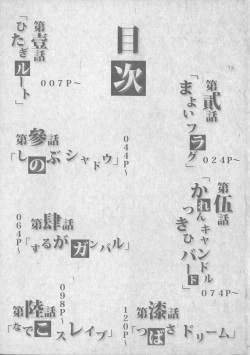 目次
第壹話
「ひたぎルート」
007P~
第貳話
「まよいフラグ」
024P~
第参話
「しのぶシャドウ」
044P~
第肆話
「するがガンバル」
064P~
第伍話
「かれんキャンドル
つきひバード」
074P~
第陸話
「なでこスレイブ」
098P~
第漆話
「つばさドリーム」
120P~